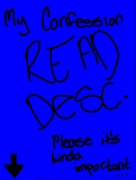 My Confession
READ
Desc.
Please it's
kinda
important